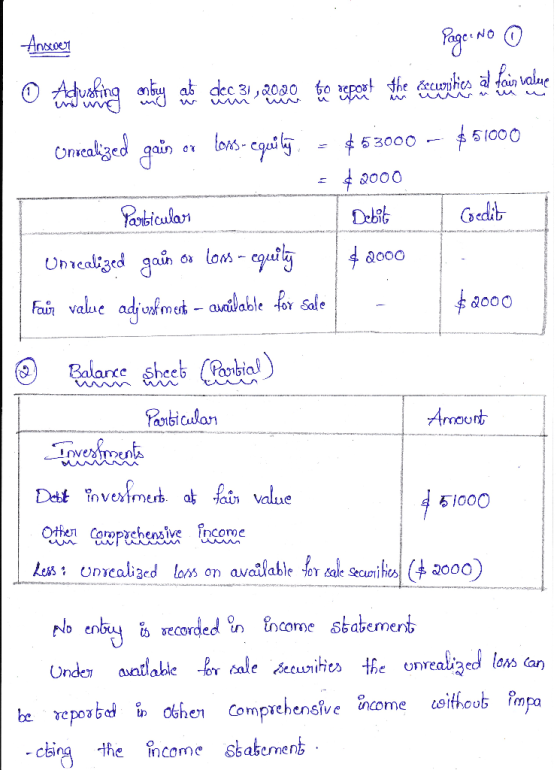 Answer
Page: No ①
① Adjusting entry at dec 31, 2020 to report the securities at fair value
Unrealized gain or loss - equity = $ 53000 - $ 51000
= $ 2000
Particular Debit Credit
Unrealized gain or loss - equity $ 2000 -
Fair value adjustment - available for sale - $ 2000
② Balance sheet (Partial)
Particular Amount
Investments
Debt investment at fair value $ 51000
Other Comprehensive Income
Less : Unrealized loss on available for sale securities ($ 2000)
No entry is recorded in income statement
Under available for sale securities the unrealized loss can
be reported in other comprehensive income without impa
-cting the income statement.